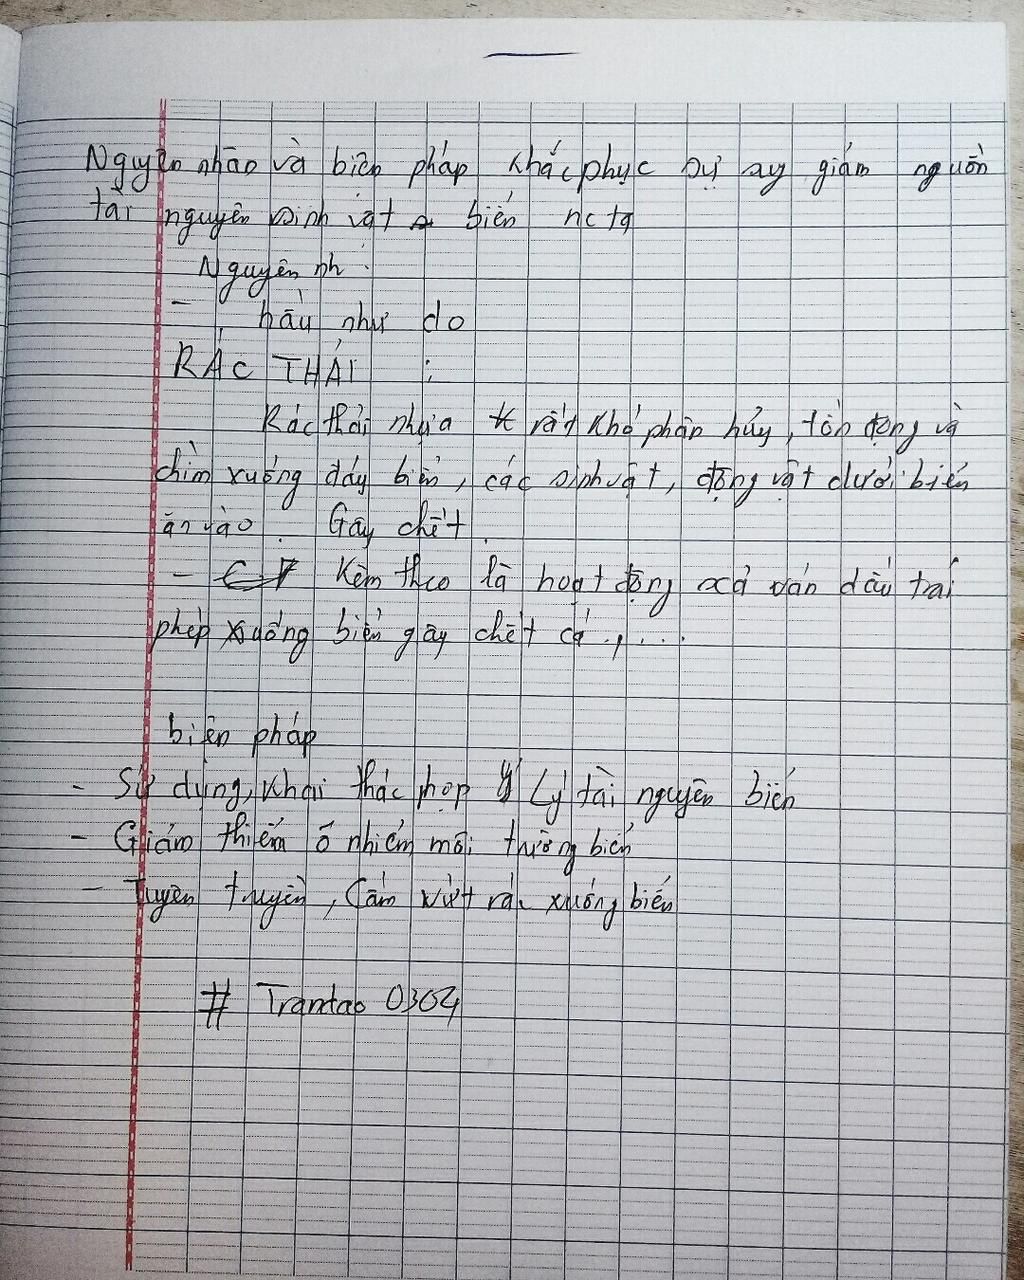 Nguyên nhân và biện pháp khắc phục sự ay giảm nguồn
tài nguyên sinh vật biển nc ta
Nguyên nh
- , hầu như do
RÁC THẢI :
Rác thải nhựa rất khó phân hủy, tồn đọng và
chìm xuống đáy biển, các sinh vật, động vật dưới biển
ăn vào. Gây chết.
- Kèm theo là hoạt động xả ván dầu trái
phép xuống biển gây chết cá.,...
biện pháp
- Sử dụng, khai thác hợp Lý tài nguyên biển
- Giảm thiểm ô nhiễm môi trường biển
- Tuyên truyền, Cấm vứt rác xuống biển
# Trantao 0304